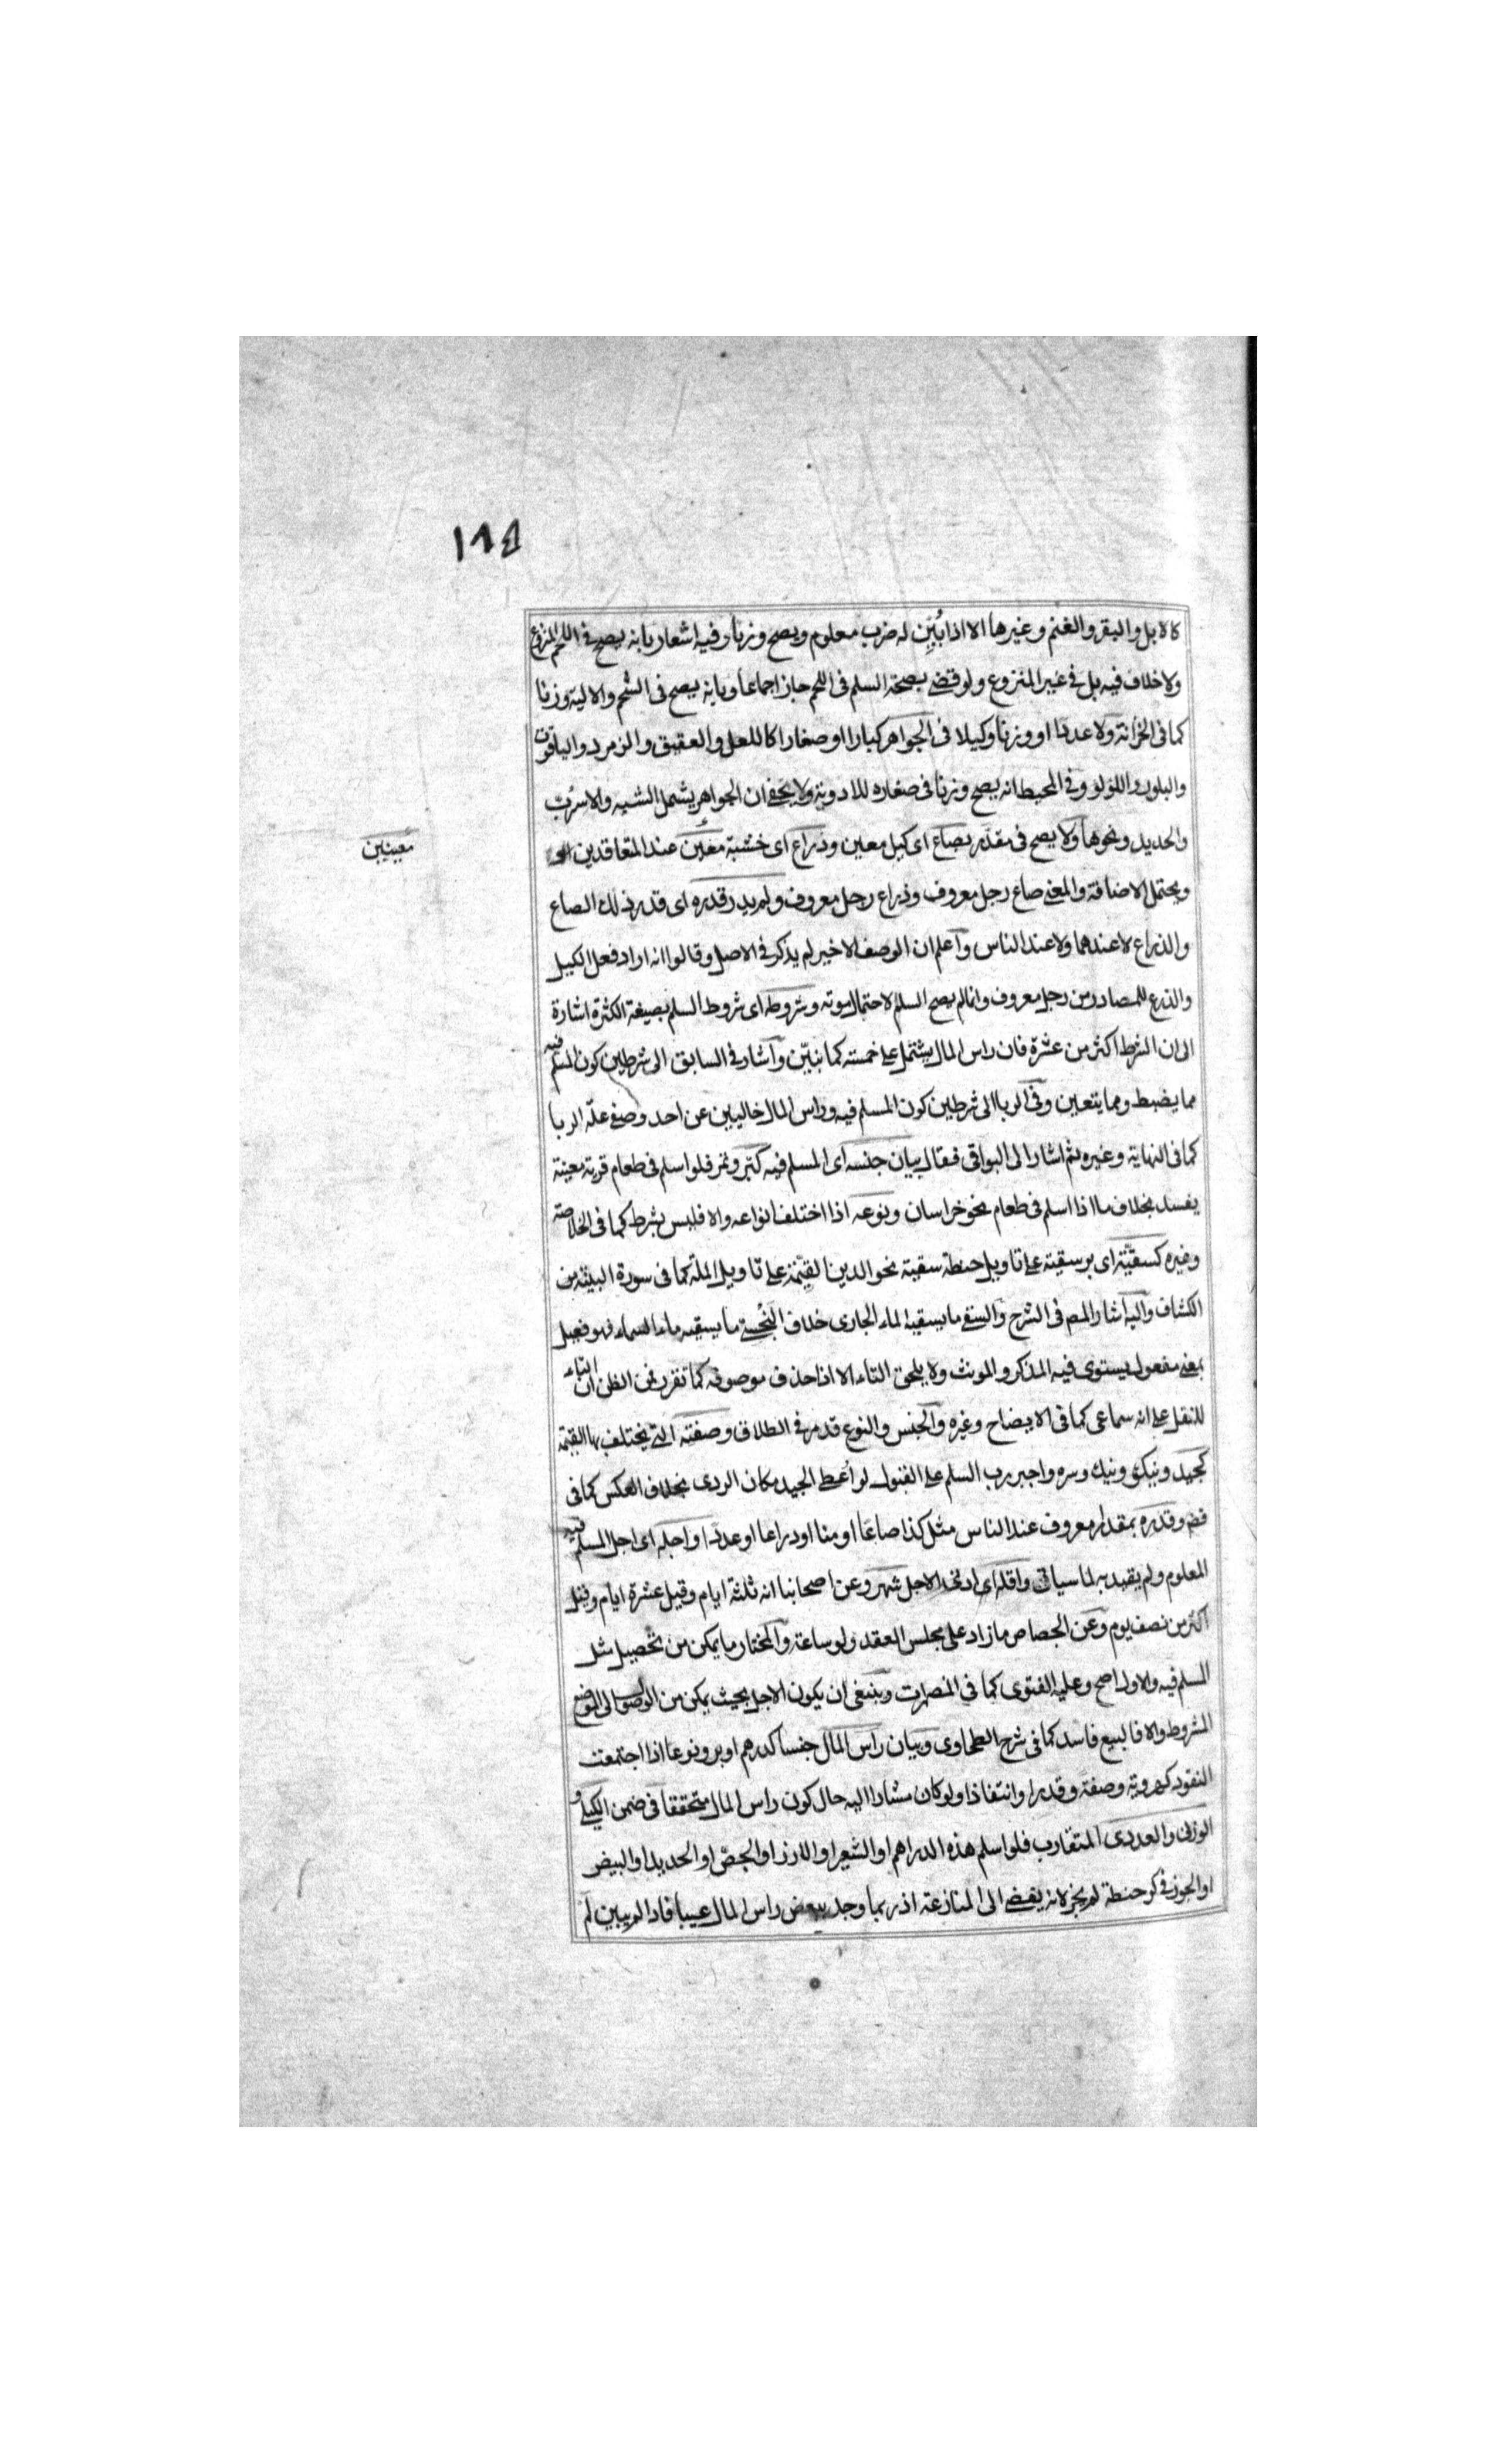 ١٨٤
كالابل والبقر والغنم وغيرها الا اذا بُيِّن له ضرب معلوم ويصح وزنا وفيه اشعار بانه يصح في اللحم المنزوع
ولا خلاف فيه بل في غير المنزوع ولو قضى بصحة السلم فى اللحم جاز اجماعا وبانه يصح فى الشحم والالية وزنا
كما فى الخزانة ولا عددا او وزنا وكيلا فى الجواهر كبارا او صغارا كاللعل والعقيق والزمرد والياقوت
والبلور واللؤلؤ وفي المحيط انه يصح وزنا فى صغاره للادوية ولا يخفى ان الجواهر يشمل الشبه والاسرب
والحديد ونحوها ولا يصح فى مقدر بصاع اى كيل معين وذراع اى خشبة معين عند المتعاقدين
معينين
ويحتمل الاضافة والمعنى صاع رجل معروف وذراع رجل معروف ولم يدر قدره اى قدر ذلك الصاع
والذراع لا عندهما ولا عند الناس واعلم ان الوصف الاخير لم يذكر في الاصل وقالوا انه اراد فعل الكيل
والذرع للمصادر من رجل معروف وانما لم يصح السلم لاحتمال موته وشروطه اى شروط السلم بصيغة الكثرة اشارة
الى ان الشرط اكثر من عشرة فان راس المال يشتمل على خمسة كما بيّن واشار في السابق الى شرطين كون المسلم فيه
مما يضبط ومما يتعين وفى الربا الى شرطين كون المسلم فيه وراس المال خاليين عن احد وصفى علة الربا
كما فى النهاية وغيره ثم اشار الى البواقى فقال بيان جنسه اى المسلم فيه كبر وتمر فلو اسلم فى طعام قرية معينة
يفسد بخلاف ما اذا اسلم فى طعام نحو خراسان ونوعه اذا اختلف انواعه والا فليس بشرط كما فى الخلاصة
وغيره كسقيّة اى بر سقية على تاويل حنطة سقية نحو الدين القيّمة على تاويل الملة كما فى سورة البينة من
الكشاف واليه اشار المص فى الشرح والسقى ما يسقيه الماء الجارى خلاف البخسى ما يسقيه ماء السماء فهو فعيل
بمعنى مفعول يستوى فيه المذكر والمونث ولا يلحق التاء الا اذا حذف موصوفه كما تقرر فمن الظن ان التاء
للنقل على انه سماعى كما فى الايضاح وغيره والجنس والنوع قد مر في الطلاق وصفته التى يختلف بها القيمة
كجيد ونيكو ونيك وسره واجبر رب السلم على القبول لو اُعطى الجيد مكان الردى بخلاف العكس كما فى
قض وقدره بمقدار معروف عند الناس مثل كذا صاعا او منا او ذراعا او عددا واجله اى اجل المسلم فيه
المعلوم ولم يقيد به لما سياتى واقله اى ادنى الاجل شهر وعن اصحابنا انه ثلثة ايام وقيل عشرة ايام وقيل
اكثر من نصف يوم وعن الجصاص ما زاد على مجلس العقد ولو ساعة والمختار ما يمكن من تحصيل مثل
المسلم فيه والاول اصح وعليه الفتوى كما في المضمرات وينبغى ان يكون الاجل بحيث يمكن من الوصول الى الموضع
المشروط والا فالبيع فاسد كما فى شرح الطحاوى وبيان راس المال جنسا كدرهم او بر ونوعا اذا اجتمعت
النقود كهروية وصفة وقدرا وانتقادا ولو كان مشارا اليه حال كون راس المال متحققا فى ضمن الكيلى و
الوزنى والعددى المتقارب فلو اسلم هذه الدراهم او الشعير او الارز او الجصّ او الحديد او البيض
او الجوز فى كر حنطة لم يجز لانه يفضى الى المنازعة اذ ربما وجد ببعض راس المال عيبا فاذا لم يبين لم